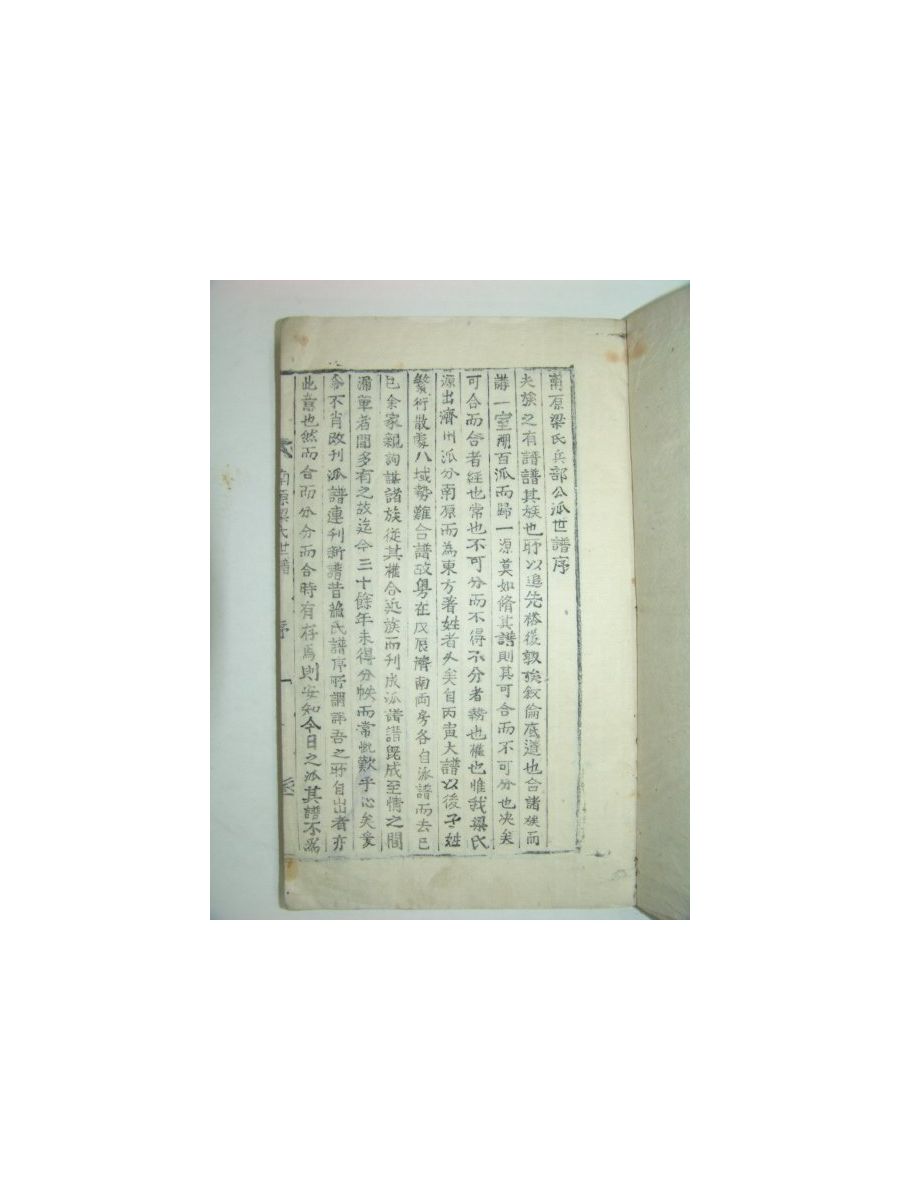 南原梁氏兵部公派世譜序
夫族之有譜譜其族也所以追先裕後敦族叙倫底道也合諸族而
講一室溯百派而歸一源莫如脩其譜則其可合而不可分也决矣
可合而合者經也常也不可分而不得不分者勢也權也惟我梁氏
源出濟州派分南原而為東方著姓者久矣自丙寅大譜以後子姓
繁衍散處八域勢難合譜故粤在戊辰濟南両房各自派譜而去己
巳余家親詢謀諸族從其權合近族而刊成派譜譜既成至情之間
漏單者間多有之故迄今三十餘年未得分帙而常慨歎乎心矣爰
命不肖改刊派譜連刋新譜昔蘓氏譜序所謂詳吾之所自出者亦
此意也然而合而分分而合時有存焉則安知今日之派其譜不為
南原梁氏世譜 序 一